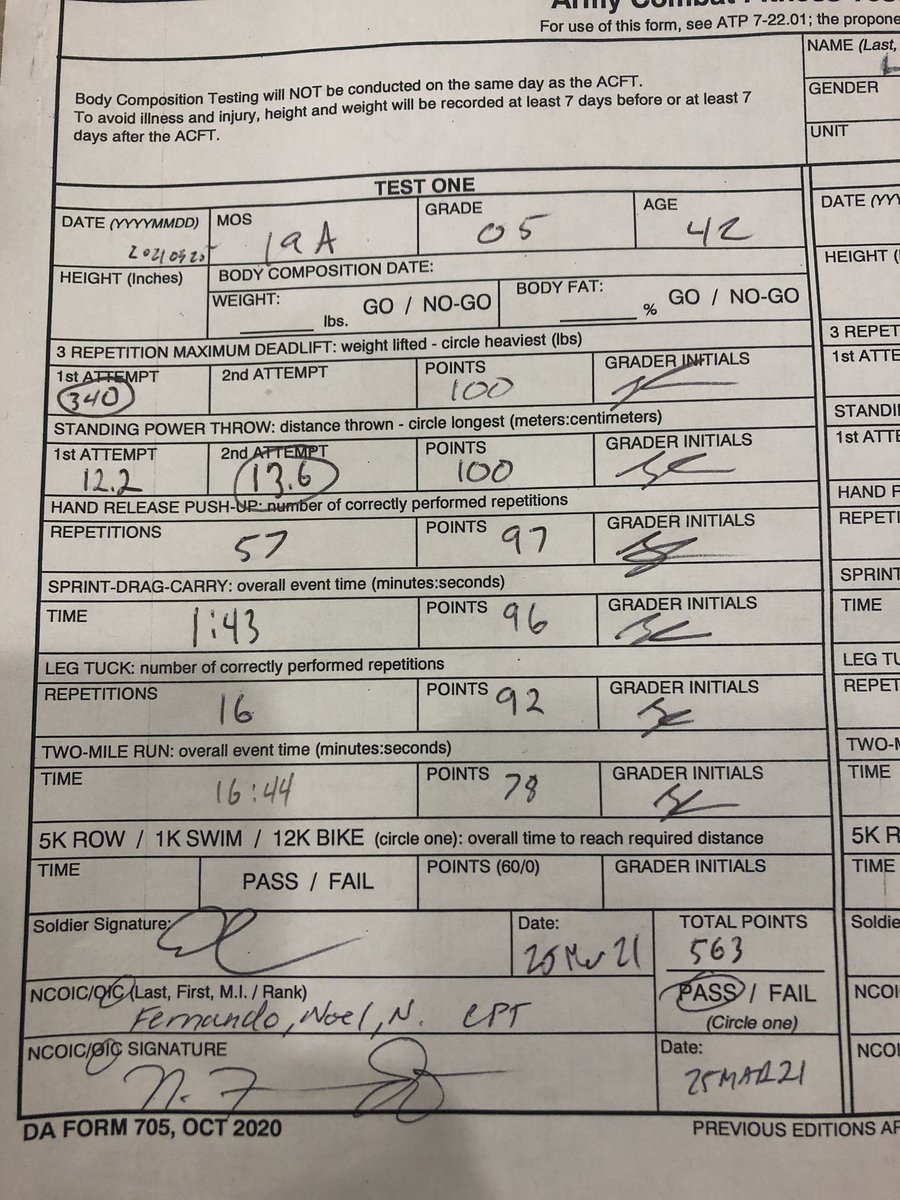 Army Combat Fitness Tes
For use of this form, see ATP 7-22.01; the propone
Body Composition Testing will NOT be conducted on the same day as the ACFT.
To avoid illness and injury, height and weight will be recorded at least 7 days before or at least 7
days after the ACFT.
NAME (Last,
GENDER
UNIT
TEST ONE
DATE (YYYYMMDD) MOS GRADE AGE
19A 05 42
HEIGHT (Inches) BODY COMPOSITION DATE:
WEIGHT: lbs. GO / NO-GO BODY FAT: % GO / NO-GO
3 REPETITION MAXIMUM DEADLIFT: weight lifted - circle heaviest (lbs)
1st ATTEMPT 2nd ATTEMPT POINTS GRADER INITIALS
340 100
STANDING POWER THROW: distance thrown - circle longest (meters:centimeters)
1st ATTEMPT 2nd ATTEMPT POINTS GRADER INITIALS
12.2 13.6 100
HAND RELEASE PUSH-UP: number of correctly performed repetitions
REPETITIONS POINTS GRADER INITIALS
57 97
SPRINT-DRAG-CARRY: overall event time (minutes:seconds)
TIME POINTS GRADER INITIALS
1:43 96
LEG TUCK: number of correctly performed repetitions
REPETITIONS POINTS GRADER INITIALS
16 92
TWO-MILE RUN: overall event time (minutes:seconds)
TIME POINTS GRADER INITIALS
16:44 78
5K ROW / 1K SWIM / 12K BIKE (circle one): overall time to reach required distance
TIME PASS / FAIL POINTS (60/0) GRADER INITIALS
Soldier Signature: Date: TOTAL POINTS
25 Mar 21 563
NCOIC/OIC (Last, First, M.I. / Rank) PASS / FAIL
Fernando, Noel, N. CPT (Circle one)
NCOIC/OIC SIGNATURE Date:
N. F 25MAR21
DA FORM 705, OCT 2020 PREVIOUS EDITIONS AR
DATE (YYY
HEIGHT (
3 REPET
1st ATTE
STANDI
1st ATTE
HAND R
REPETI
SPRINT
TIME
LEG TU
REPET
TWO-M
TIME
5K R
TIME
Soldie
NCOI
NCOI